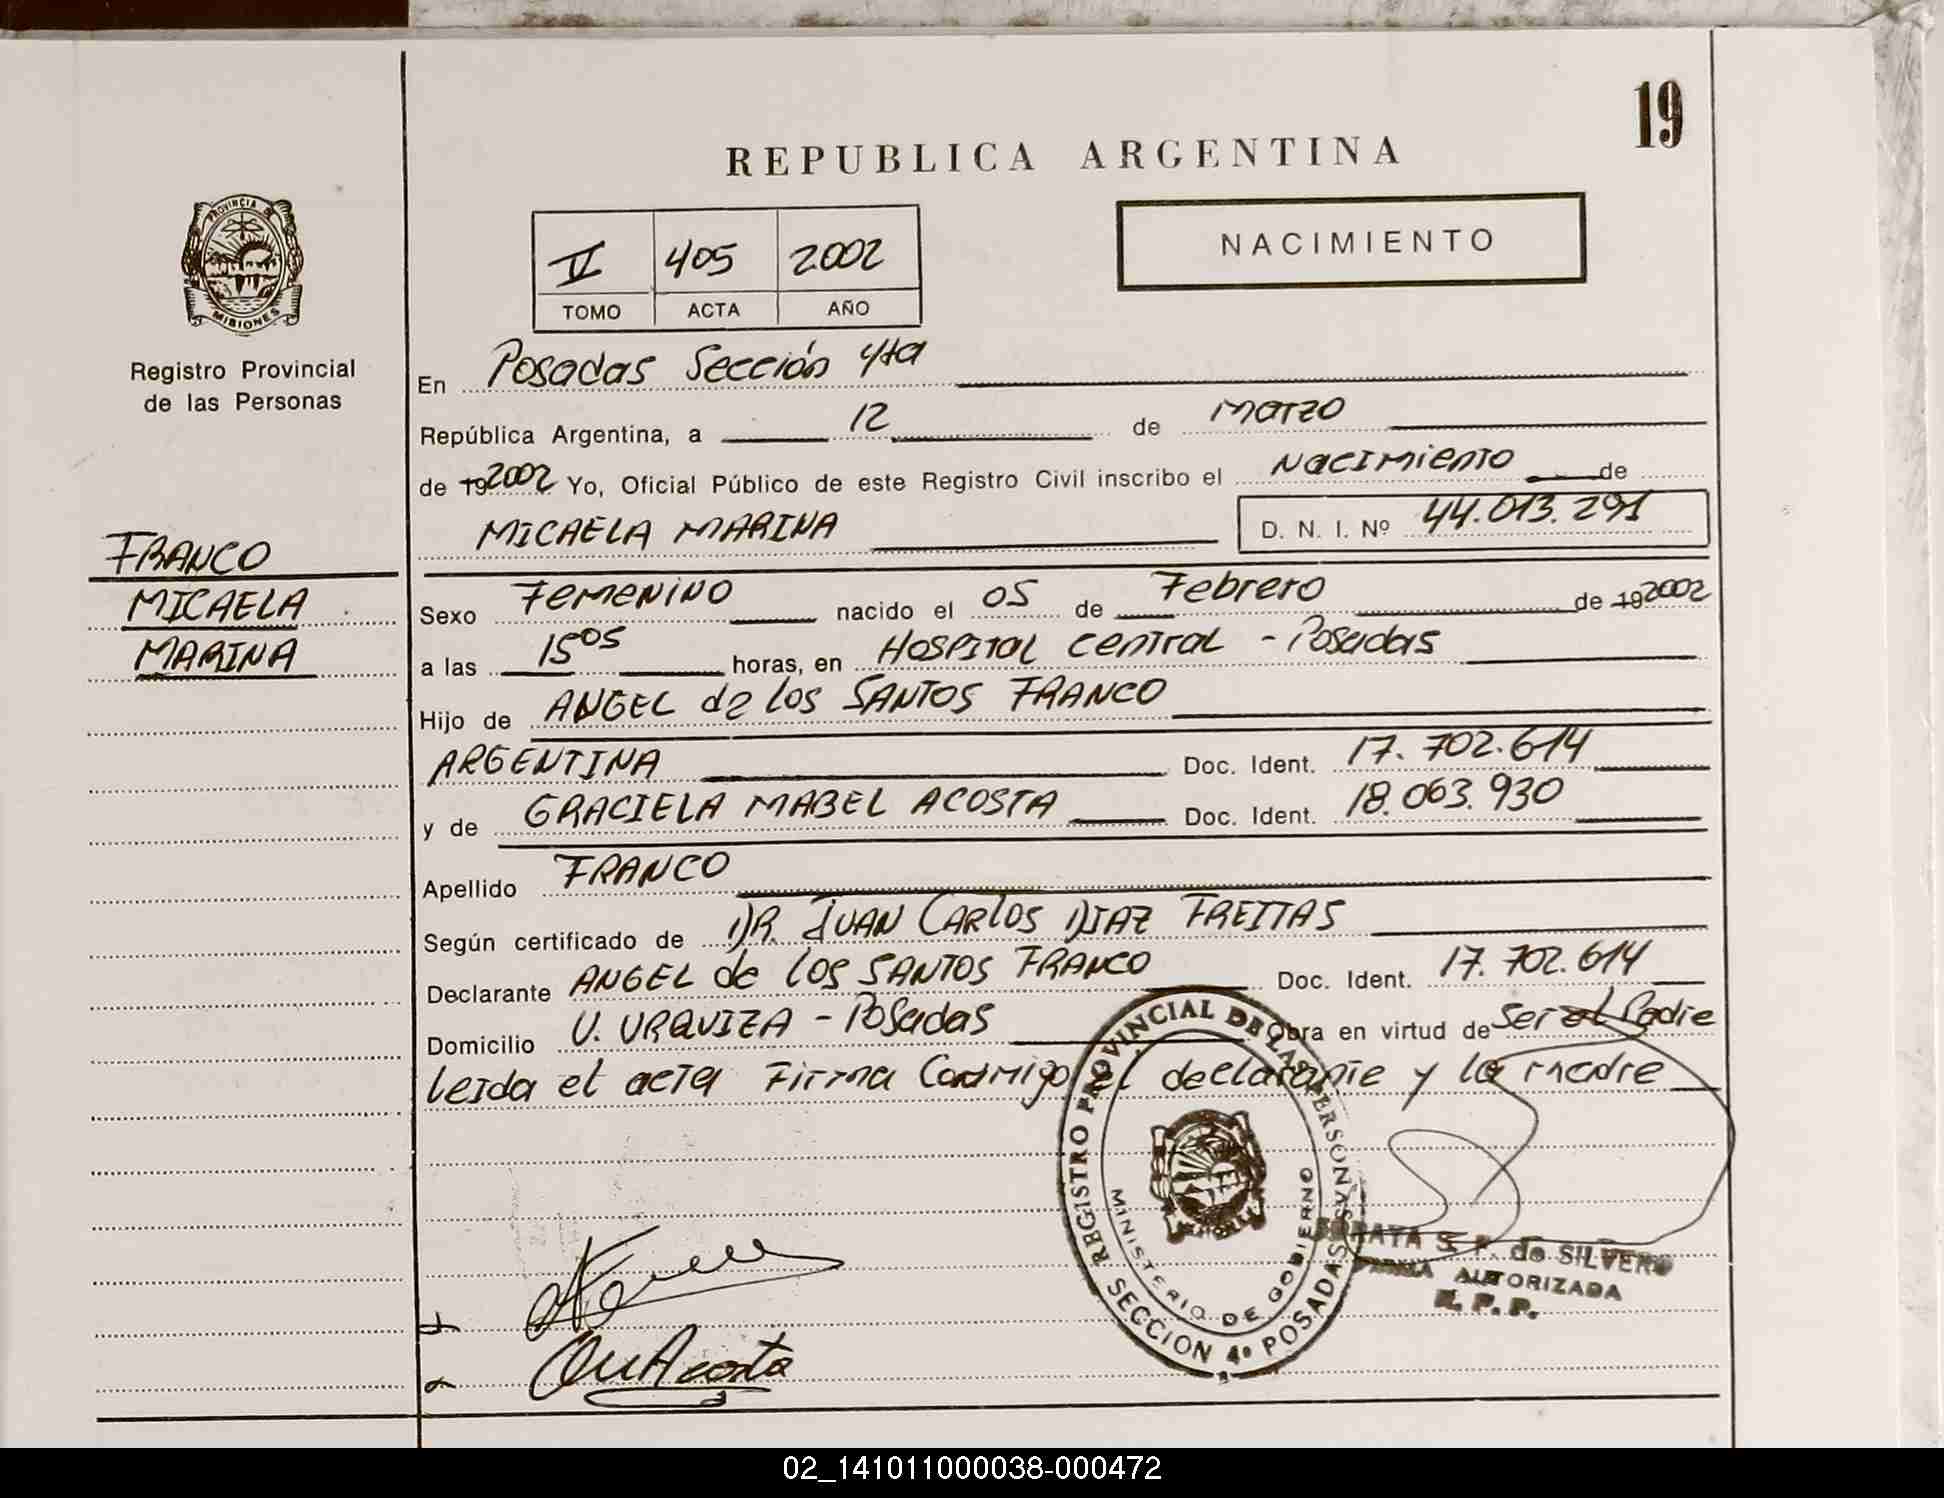 19
REPUBLICA ARGENTINA
PROVINCIA DE
MISIONES
Registro Provincial
de las Personas
V 405 2002
TOMO ACTA AÑO
NACIMIENTO
En Posadas Sección 4ta
República Argentina, a 12 de Marzo
de 192002 Yo, Oficial Público de este Registro Civil inscribo el Nacimiento de
MICAELA MARINA D. N. I. Nº 44.013.291
FRANCO
MICAELA
MARINA
Sexo Femenino nacido el 05 de Febrero de 192002
a las 15 05 horas, en Hospital Central - Posadas
Hijo de ANGEL de los SANTOS FRANCO
ARGENTINA Doc. Ident. 17.702.614
y de GRACIELA MABEL ACOSTA Doc. Ident. 18.063.930
Apellido FRANCO
Según certificado de DR. JUAN CARLOS DIAZ FREITAS
Declarante ANGEL de los SANTOS FRANCO Doc. Ident. 17.702.614
Domicilio U. URQUIZA - Posadas Obra en virtud de ser el Padre
Leida el acta Firma Conmigo el declarante y la madre
REGISTRO PROVINCIAL DE LAS PERSONAS
MINISTERIO DE GOBIERNO
SECCION 4º POSADAS
S. F. de SILVERO
AUTORIZADA
R. P. P.
Acosta
02_141011000038-000472